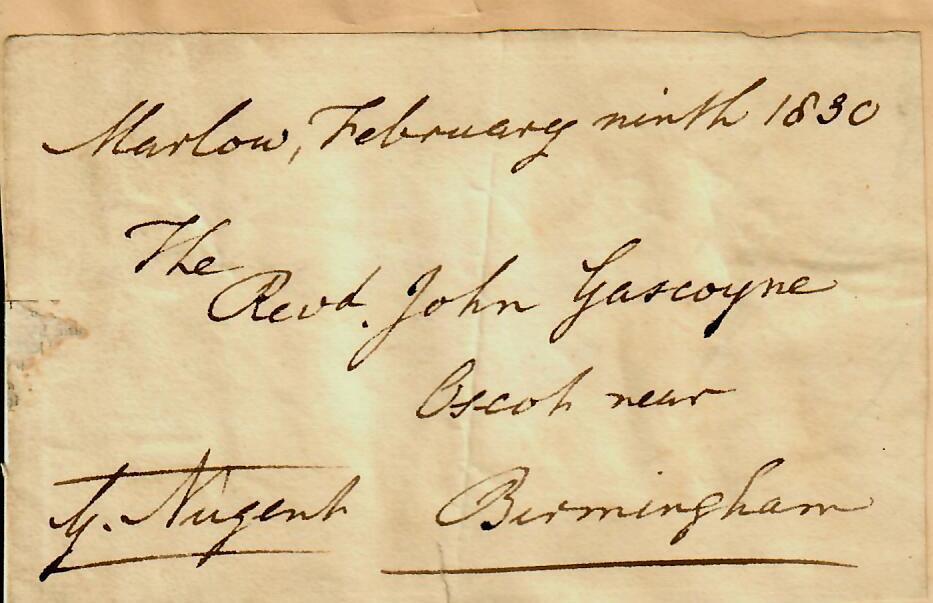 Marlow, February ninth 1830
The
Revd. John Gascoyne
Oscott near
G. Nugent Birmingham